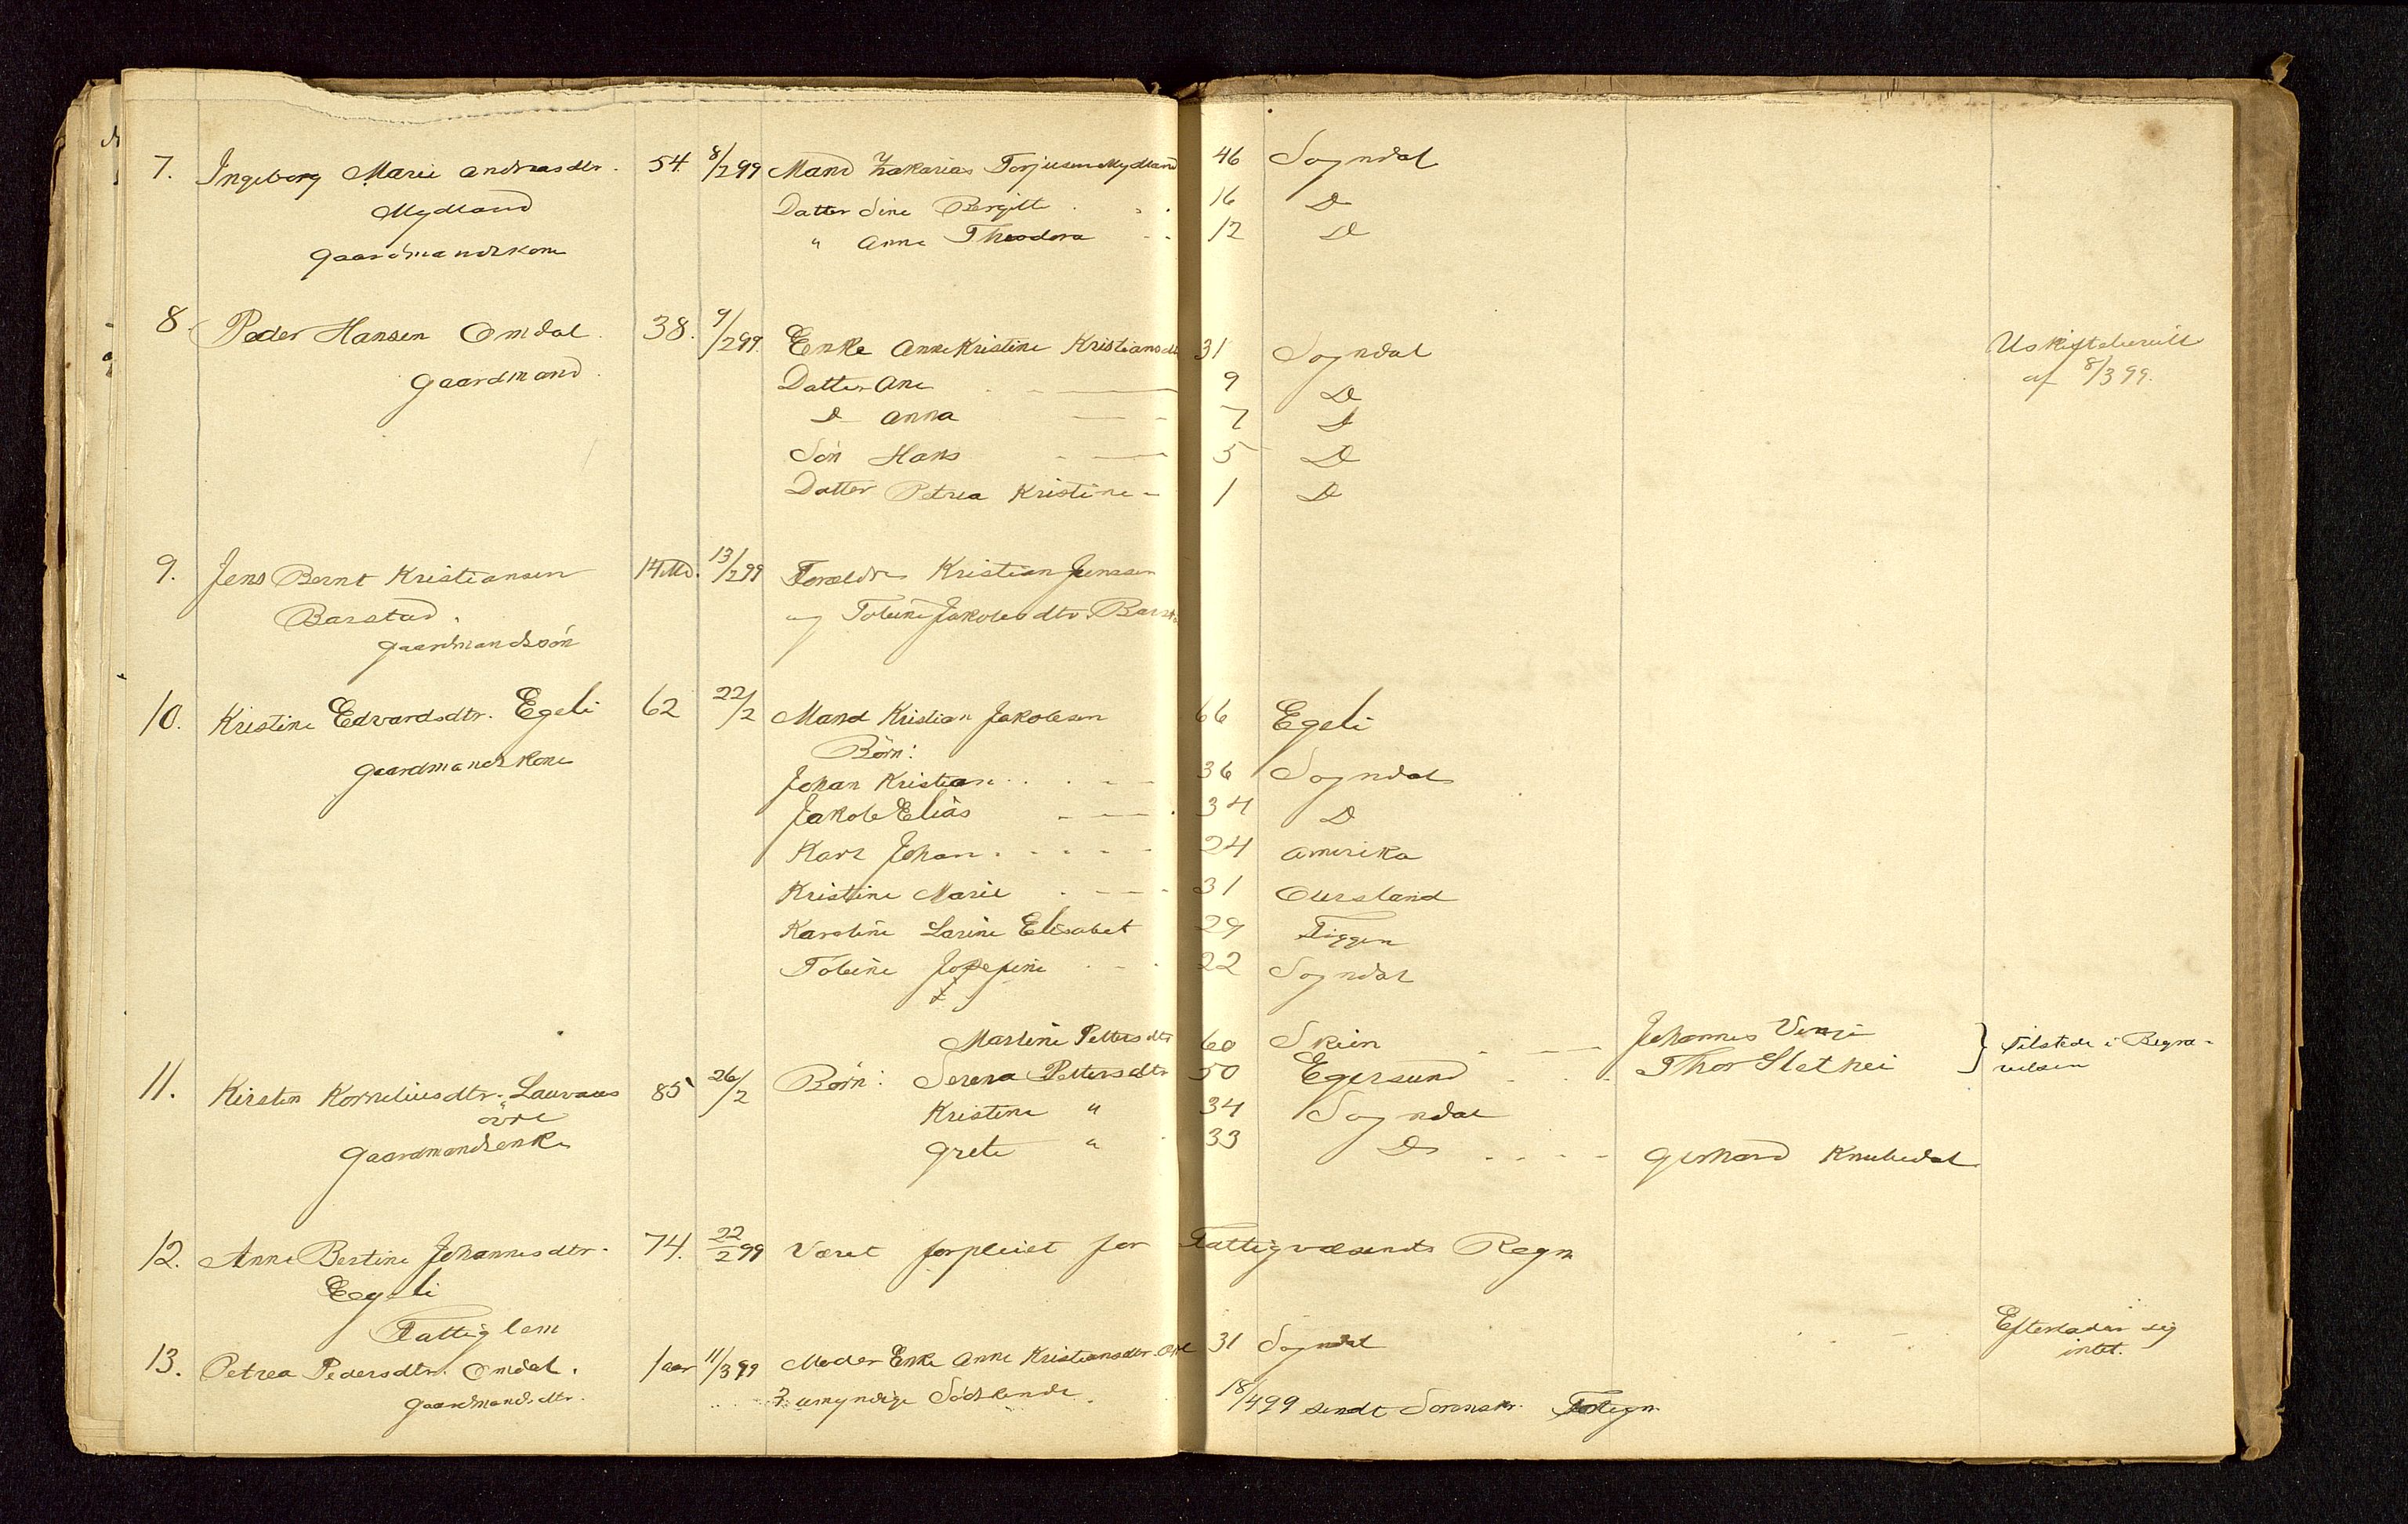 7. Ingeborg Marie Andreasdtr. 54. 8/2 99 Mand Zakarias Torjusen Mydland 46 Sogndal
Mydland Datter Sine Bergitte 16 D
Gaardmandskone " Anne Theodora 12 D
8. Peder Hansen Omdal. 38. 9/2 99. Enke Anne Kristine Kristiansdt 31 Sogndal Uskiftebevill
Gaardmand. Datter Ane 9 D af 8/3 99.
D Anna 7 D
Søn Hans 5 D
Datter Petrea Kristine 1 D
9. Jens Bernt Kristiansen 14 Md. 13/2 99 Forældre Kristian Jenssen
Barstad. og Tobine Jakobsdtr. Barst
Gaardmandssøn
10. Kristine Edvardsdtr. Egeli 62 22/2 Mand Kristian Jakobsen 66 Egeli
Gaardmandskone Børn:
Johan Kristian 36 Sogndal
Jakob Elias 34 D
Karl Johan 24 Amerika
Kristine Marie 31 Oursland
Karoline Larine Elisabet 29 Tiggen
Tobine Josefine 22 Sogndal
Martine Pettersdtr 60 Skien Johannes Vinje } Tilstede i Begra-
11. Kirsten Korneliusdtr. Lauvaas 85 26/2 Børn: Serena Pettersdtr 50 Egersund Thor Slethei velsen
øvre Kristine " 34 Sogndal
Gaardmandsenke Grete " 33 D Gerhard Knubedal
12. Anne Bertine Johannesdtr. 74. 22/2 99 Været forpleiet for Fattigvæsenets Regn
Egeli
Fattiglem
13. Petrea Pedersdtr. Omdal. 1 aar 11/3 99 Moder Enke Anne Kristiansdtr. 31 Sogndal Efterlader sig
intet.
Gaardmandsdtr. 3 umyndige Sødskende. 18/4 99 sendt Sorenskr.